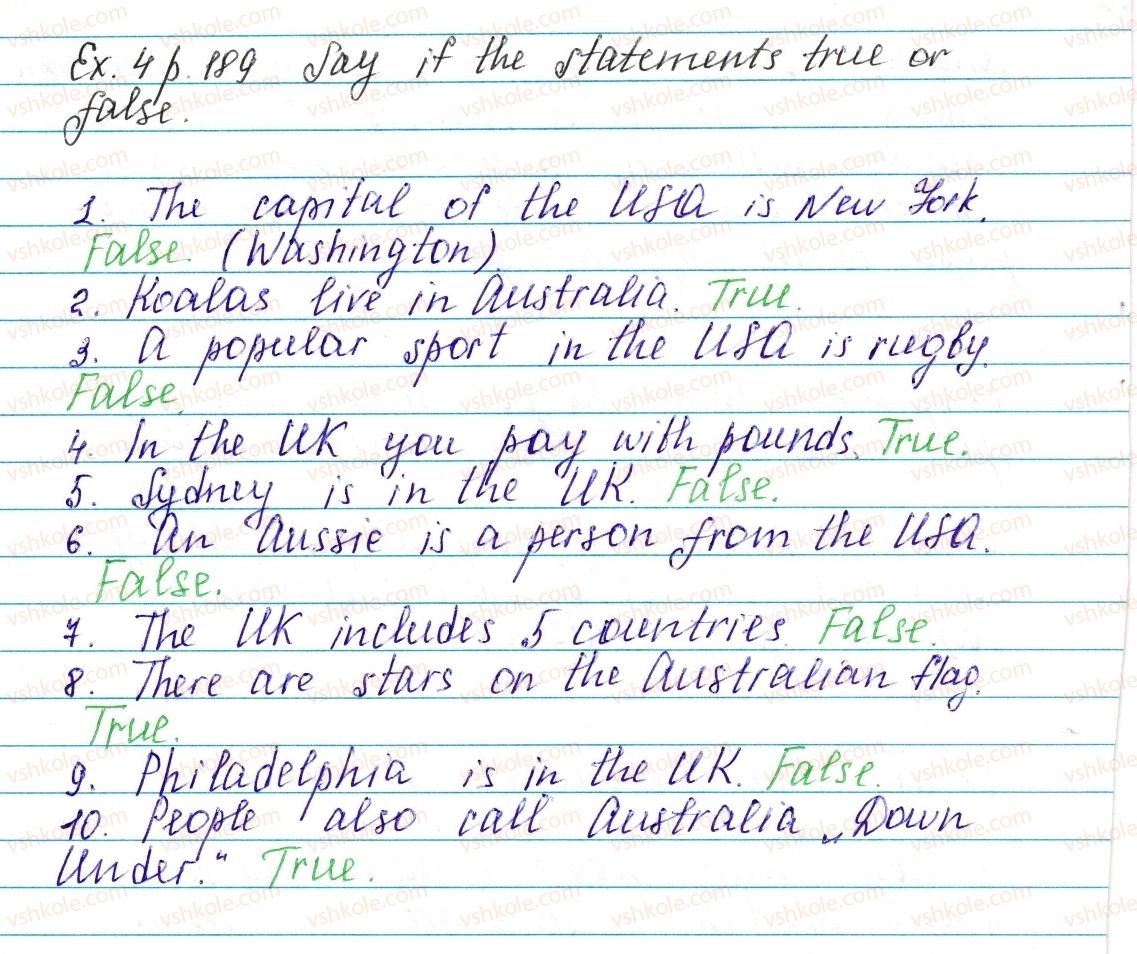 Ex. 4 p. 189 Say if the statements true or
false.
1. The capital of the USA is New York.
False. (Washington)
2. Koalas live in Australia. True.
3. A popular sport in the USA is rugby.
False.
4. In the UK you pay with pounds. True.
5. Sydney is in the UK. False.
6. An Aussie is a person from the USA.
False.
7. The UK includes 5 countries. False.
8. There are stars on the Australian flag.
True.
9. Philadelphia is in the UK. False.
10. People also call Australia „Down
Under.“ True.